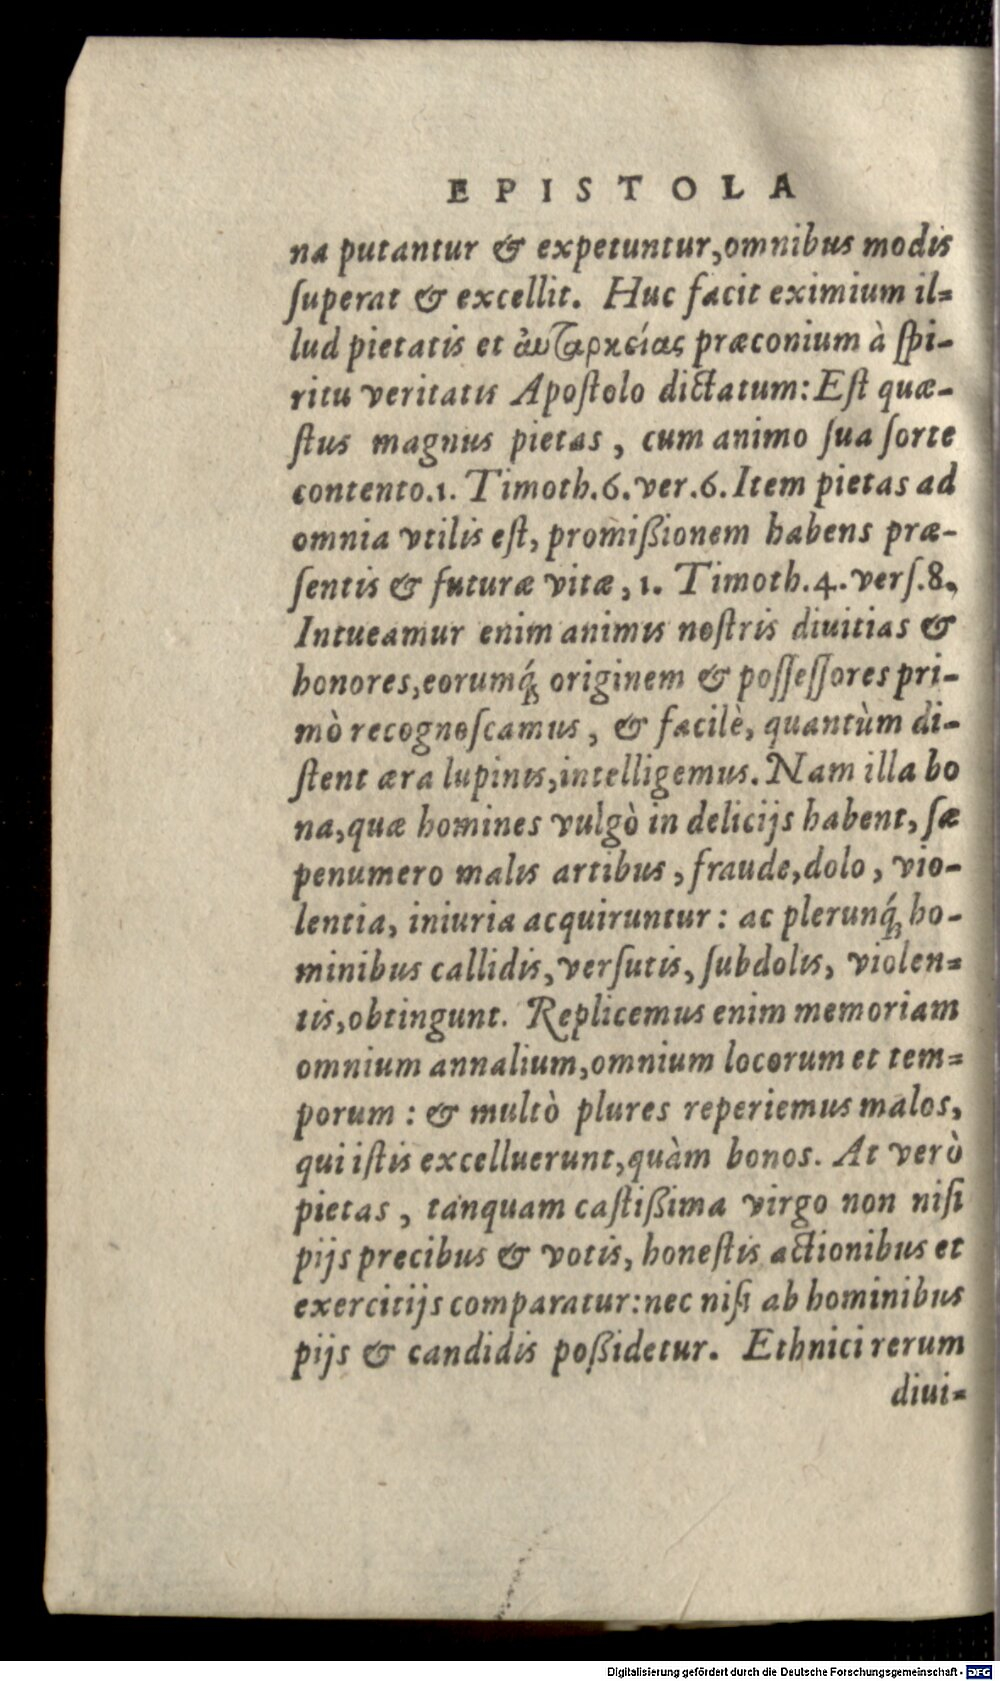 EPISTOLA
na putantur & expetuntur, omnibus modis
ſuperat & excellit. Huc facit eximium il=
lud pietatis et αὐταρκείας præconium à ſpi-
ritu veritatis Apoſtolo dictatum: Eſt quæ-
ſtus magnus pietas, cum animo ſua ſorte
contento. 1. Timoth. 6. ver. 6. Item pietas ad
omnia vtilis eſt, promißionem habens præ-
ſentis & futuræ vitæ, 1. Timoth. 4. verſ. 8.
Intueamur enim animis noſtris diuitias &
honores, eorumq́ꝫ originem & poſſeſſores pri-
mò recognoſcamus, & facilè, quantùm di-
ſtent æra lupinis, intelligemus. Nam illa bo
na, quæ homines vulgò in delicijs habent, ſæ
penumero malis artibus, fraude, dolo, vio-
lentia, iniuria acquiruntur: ac plerunq́ꝫ ho-
minibus callidis, verſutis, ſubdolis, violen=
tis, obtingunt. Replicemus enim memoriam
omnium annalium, omnium locorum et tem=
porum: & multò plures reperiemus malos,
qui iſtis excelluerunt, quàm bonos. At verò
pietas, tanquam caſtißima virgo non niſi
pijs precibus & votis, honeſtis actionibus et
exercitijs comparatur: nec niſi ab hominibus
pijs & candidis poßidetur. Ethnici rerum
diui=
Digitalisierung gefördert durch die Deutsche Forschungsgemeinschaft - DFG